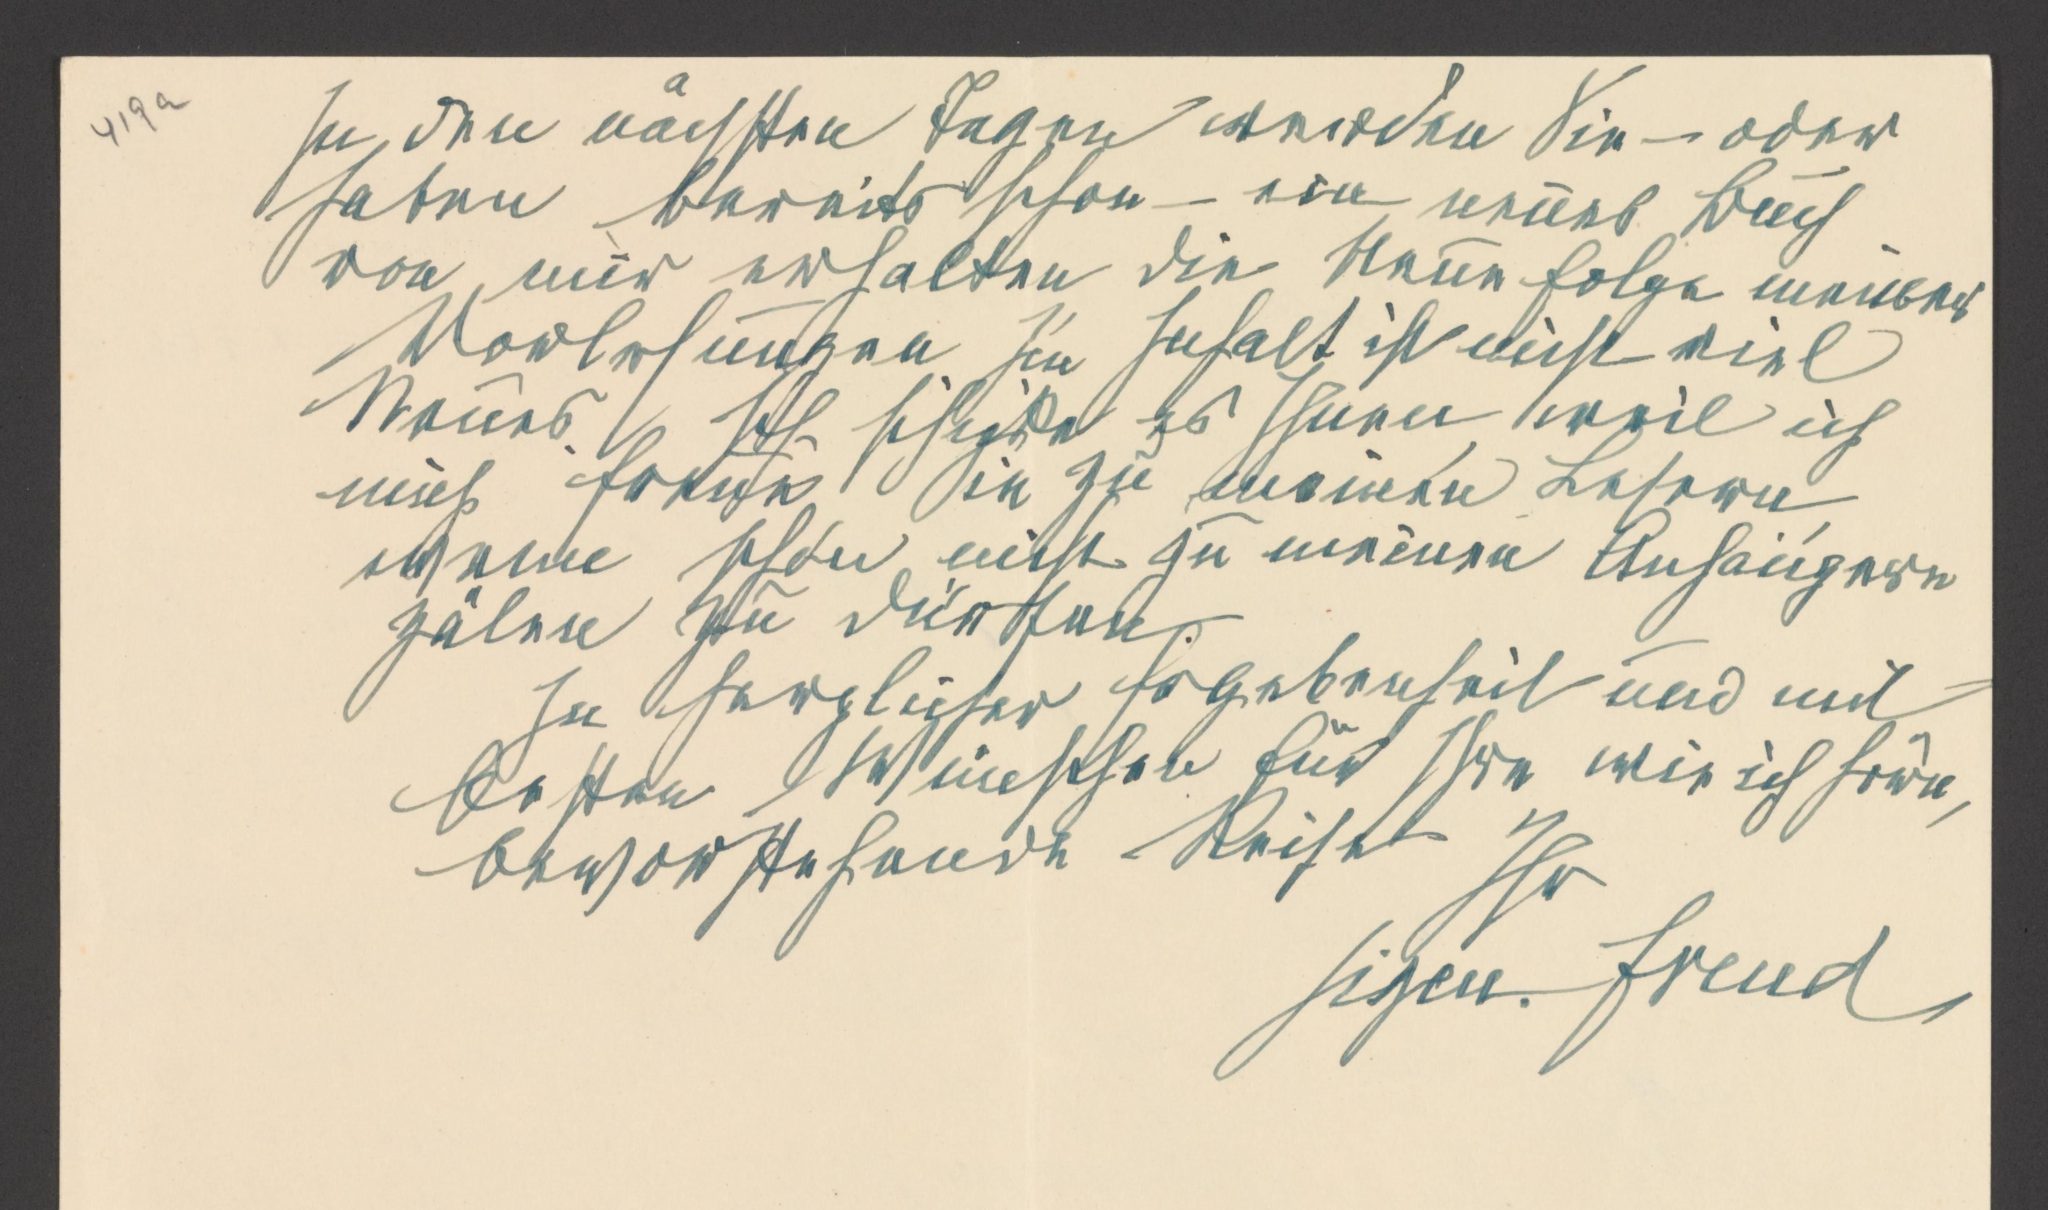 419a
In den nächsten Tagen werden Sie – oder
haben bereits schon – ein neues Buch
von mir erhalten die Neue Folge meiner
Vorlesungen. Im Inhalt ist nicht viel
Neues. Ich schicke es Ihnen weil ich
mich freue Sie zu meinen Lesern
wenn schon nicht zu meinen Anhängern
zälen zu dürfen.
In herzlicher Ergebenheit und mit
besten Wünschen für Ihre wie ich höre,
bevorstehende Reise
Ihr
Sigm. Freud